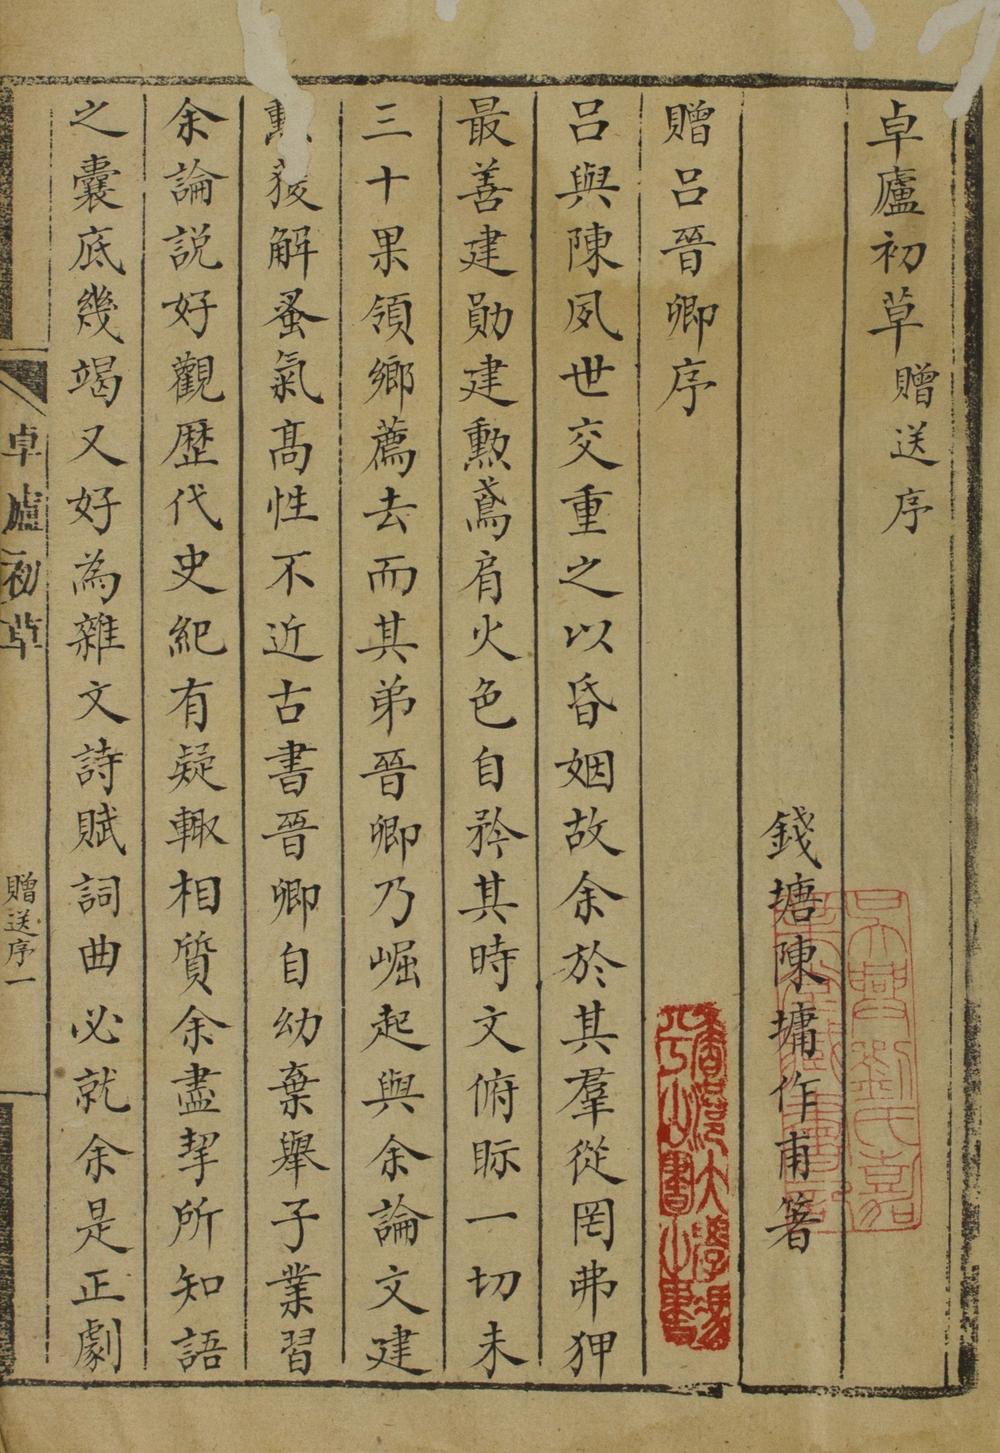 卓廬初草 贈送序
錢塘陳墉作甫著
贈呂晉卿序
呂與陳夙世交重之以昏姻故余於其羣從罔弗狎
最善建勛建勲鳶肩火色自矜其時文俯眎一切未
三十果領鄉薦去而其弟晉卿乃崛起與余論文建
解蚤氣高性不近古書晉卿自幼棄舉子業習
余論說好觀歷代史紀有疑輙相質余盡挈所知語
之囊底幾竭又好為雜文詩賦詞曲必就余是正劇
卓廬初草
贈送序一
吳興劉氏嘉
業堂藏書印
香港大學馮
平山圖書